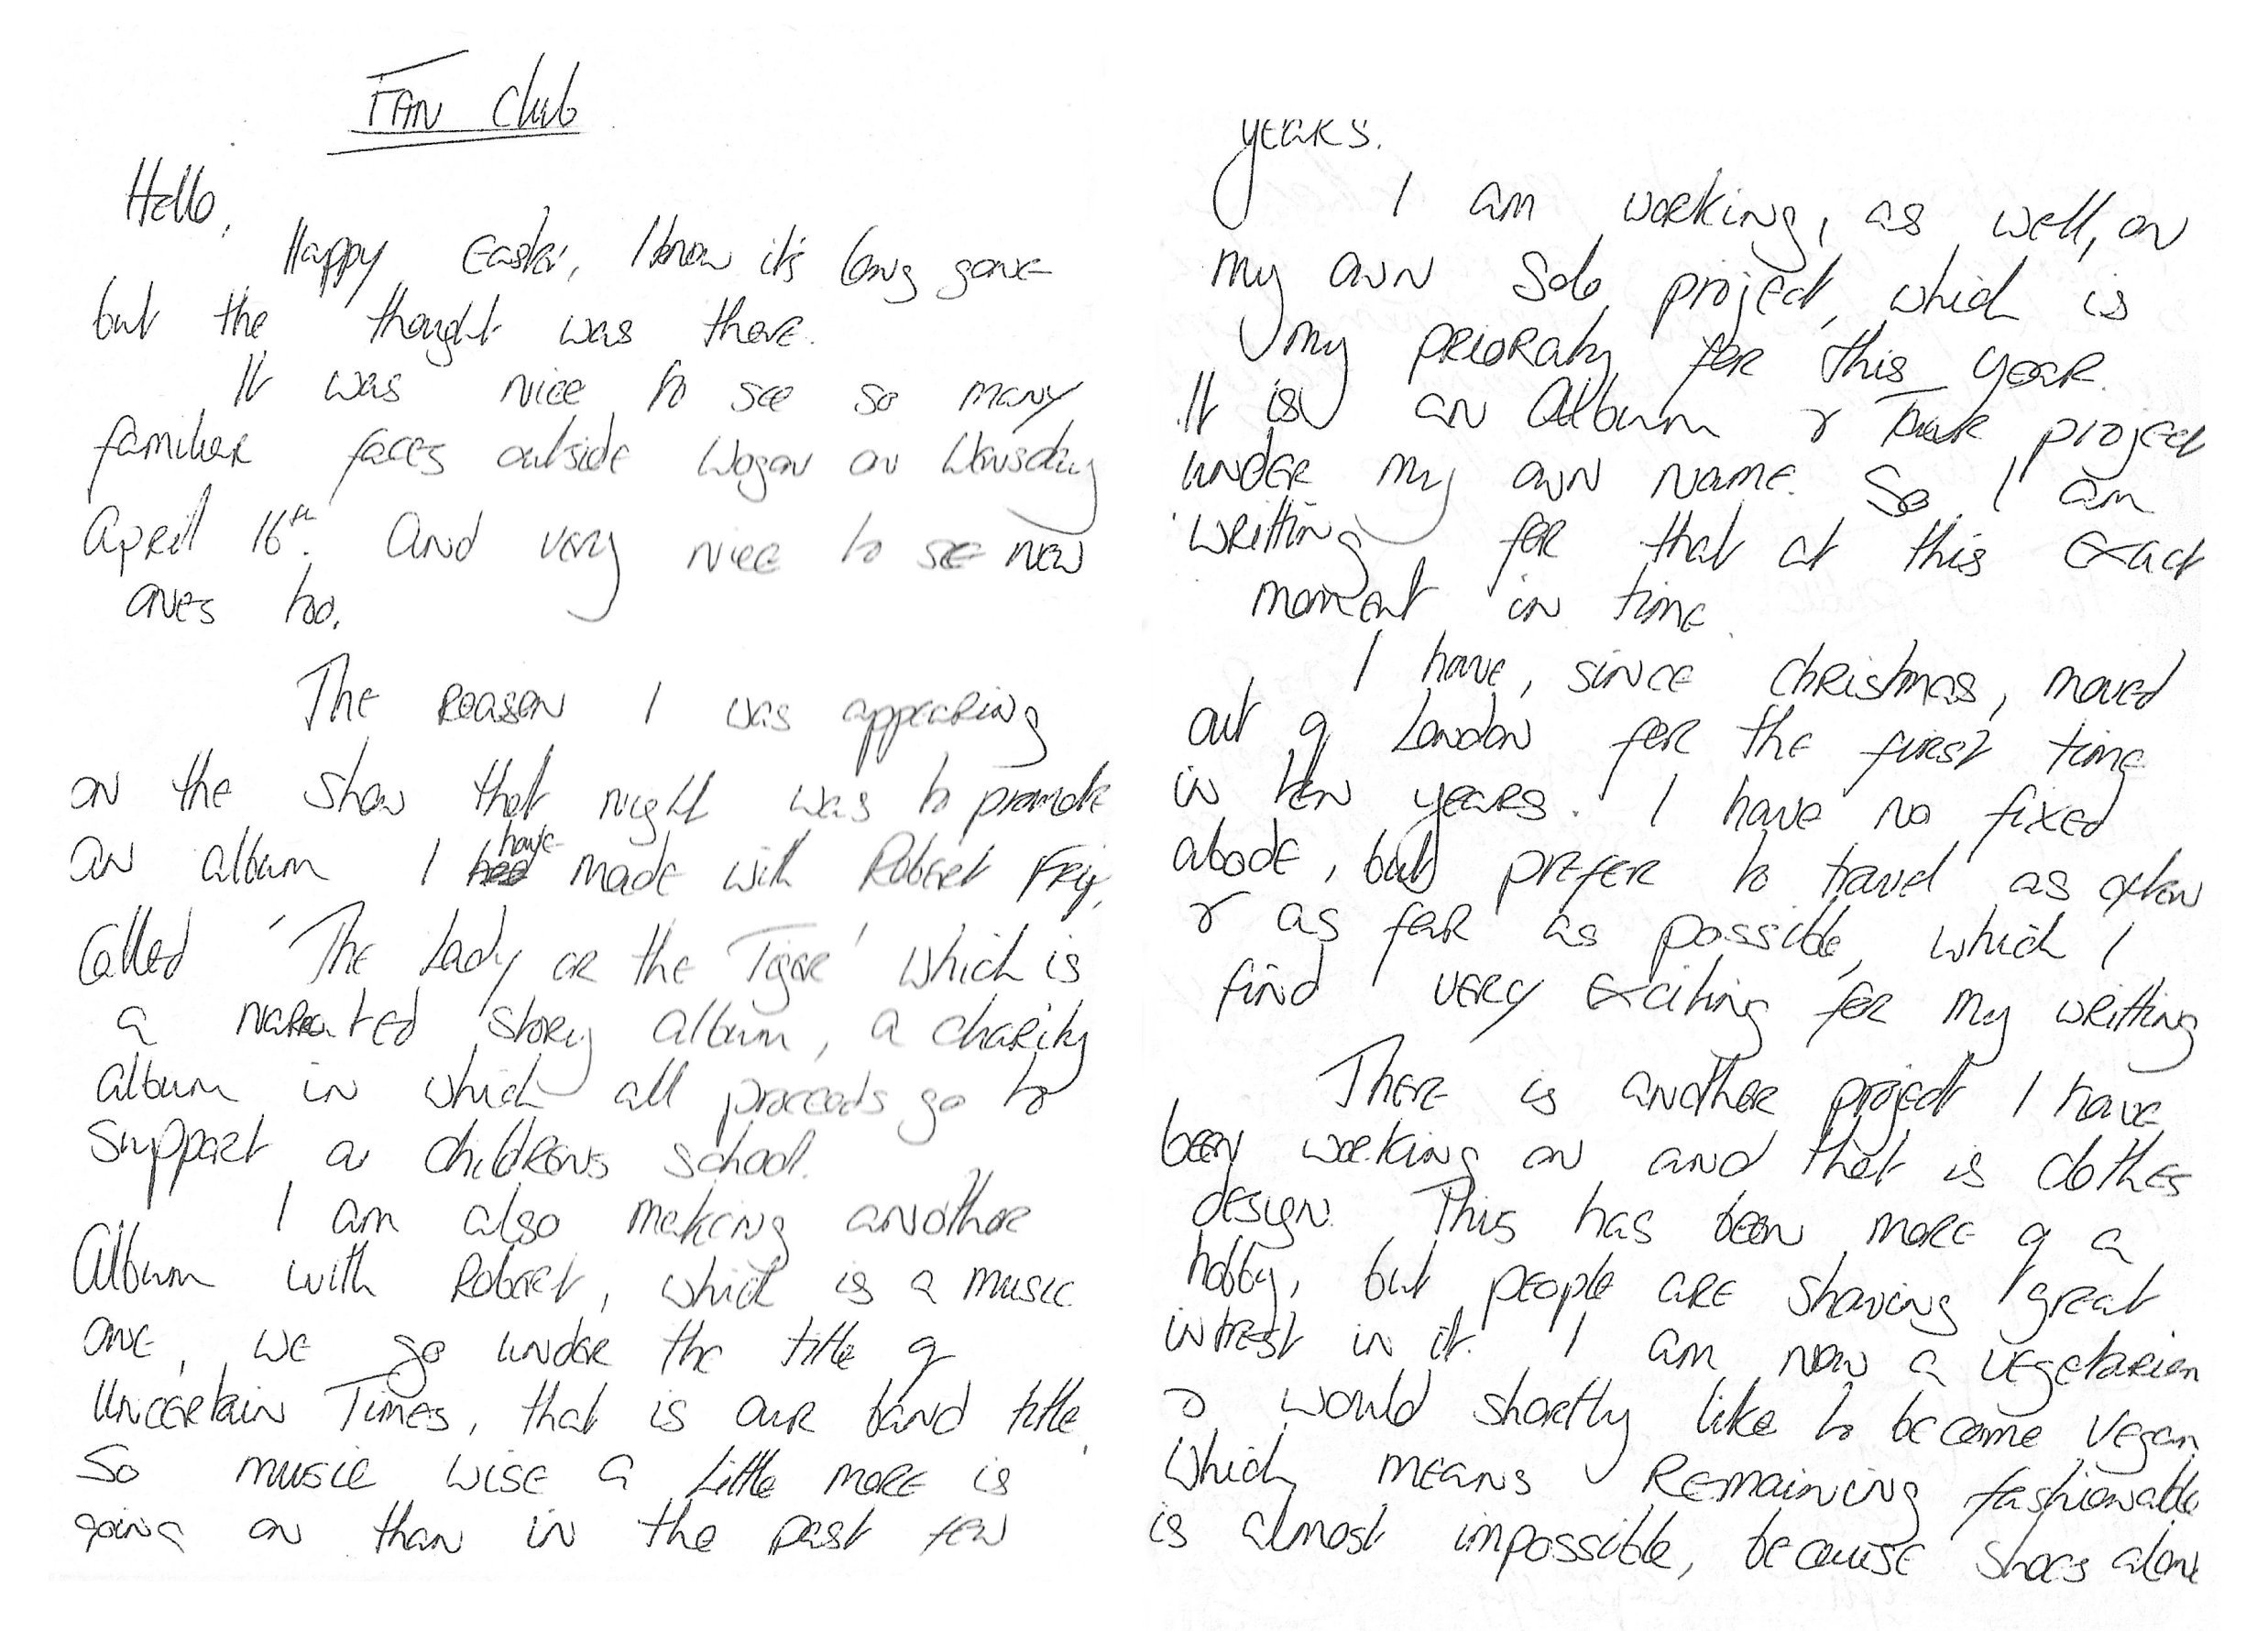 FAN Club
Hello,
Happy Easter, I know it's long gone
but the thought was there.
It was nice to see so many
familiar faces outside Wogan on Wensday
April 16th. And very nice to see new
ones too.
The reason I was appearing
on the show that night was to promote
an album I have made with Robert Frip,
Called 'The Lady or the Tiger' which is
a narrated story album, a charity
album in which all proceeds go to
support a childrens school.
I am also making another
Album with Robert, which is a music
one, we go under the title of
Uncertain Times, that is our band title.
So music wise a little more is
going on than in the past few
years.
I am working, as well, on
my own solo project, which is
my prioraty for this year.
It is an Album & project
under my own name. So I am
writting for that at this exact
moment in time.
I have, since christmas, moved
out of London for the first time
in ten years. I have no fixed
abode, but prefer to travel as often
& as far as possible, which I
find very exciting for my writting
There is another project I have
been working on and that is clothes
design. This has been more of a
hobby, but people are showing great
intrest in it. I am now a vegetarian
& would shortly like to become vegan,
which means remaining fashionable
is almost impossible, because shoes alone